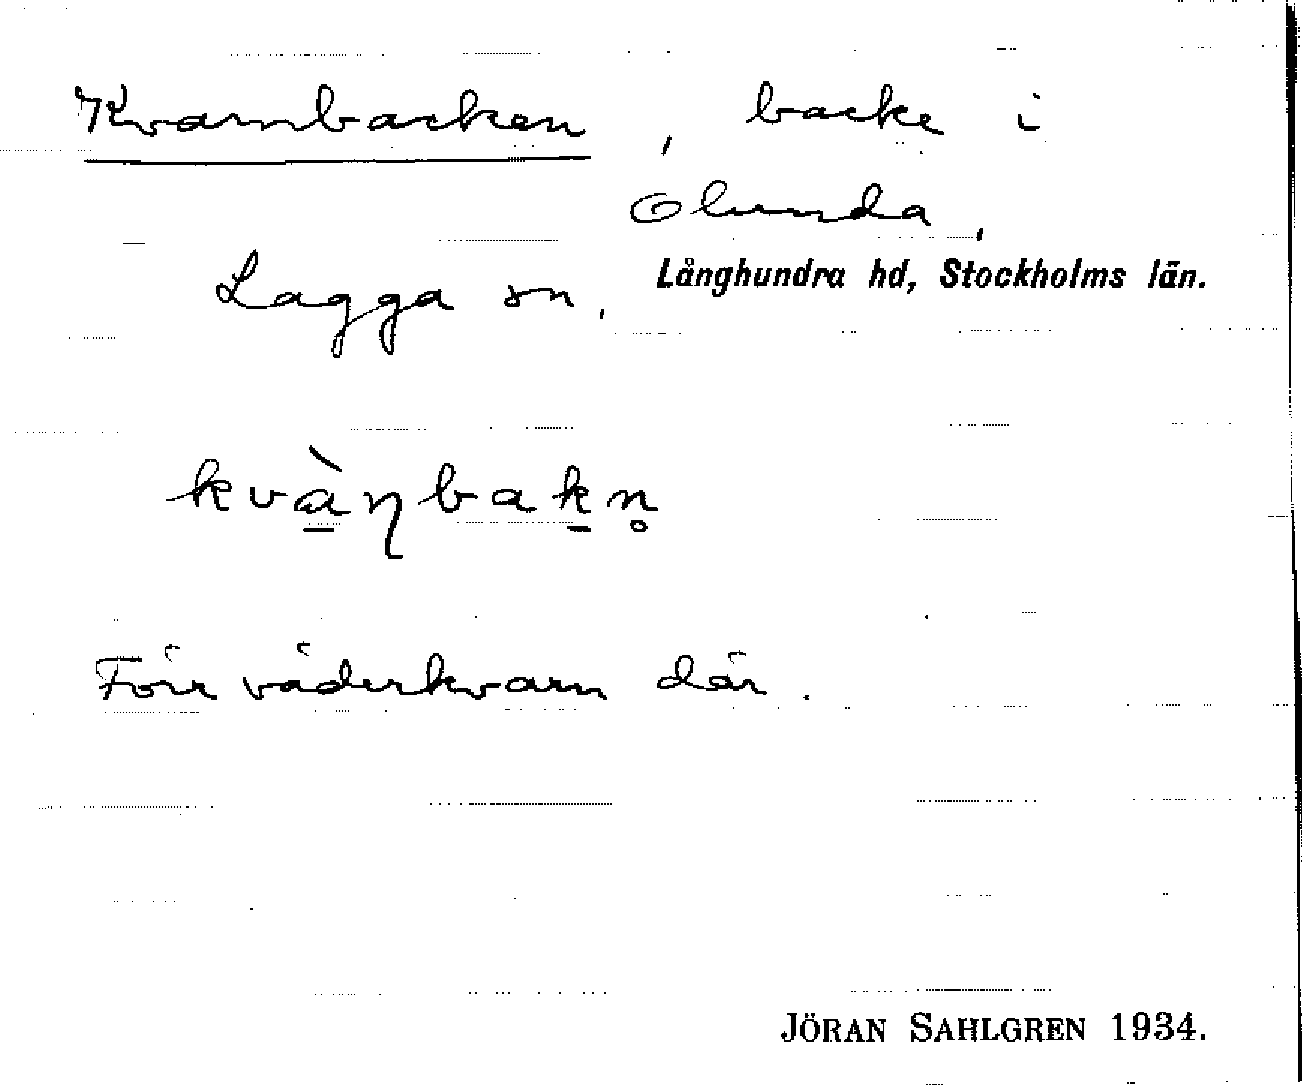 Kvarnbacken, backe i
Olunda,
Lagga sn, Långhundra hd, Stockholms län.
kvà̱ɳbaḵn̥
Förr väderkvarn där.
JÖRAN SAHLGREN 1934.